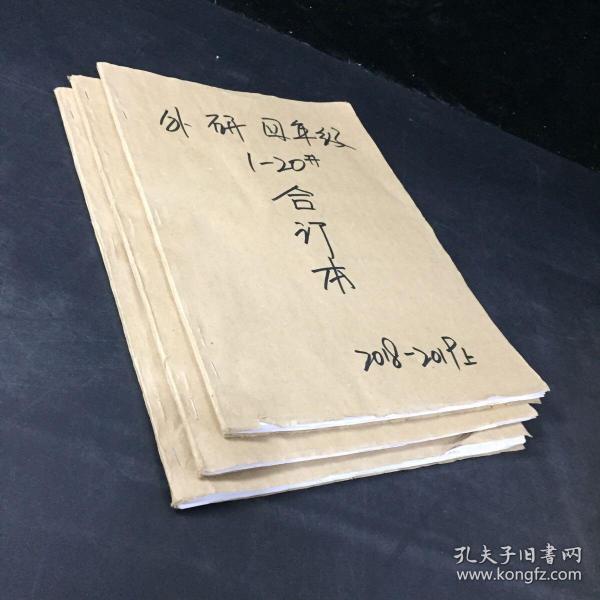 外研四年级
1-20#
合
订
本
2018-2019上
孔夫子旧书网
www.kongfz.com